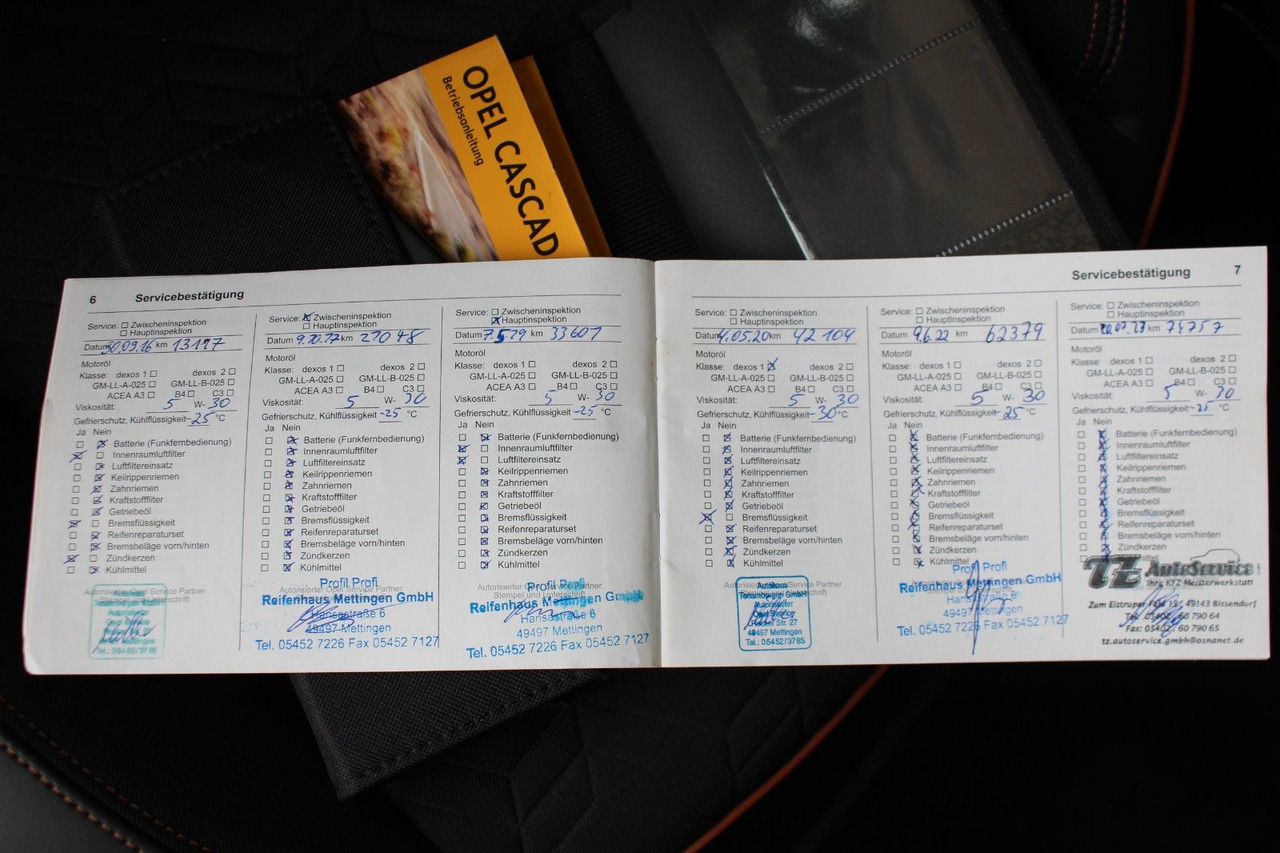 OPEL CASCAD
Betriebsanleitung
6 Servicebestätigung
Service: ☐ Zwischeninspektion
☐ Hauptinspektion
Datum 30.09.16 km 13127
Motoröl
Klasse: dexos 1 ☐ dexos 2 ☐
GM-LL-A-025 ☐ GM-LL-B-025 ☐
ACEA A3 ☐ B4 ☐ C3 ☐
Viskosität: 5 W- 30
Gefrierschutz, Kühlflüssigkeit -25 °C
Ja Nein
☐ ☒ Batterie (Funkfernbedienung)
☒ ☐ Innenraumluftfilter
☐ ☒ Luftfiltereinsatz
☐ ☒ Keilrippenriemen
☐ ☒ Zahnriemen
☐ ☒ Kraftstofffilter
☐ ☒ Getriebeöl
☒ ☐ Bremsflüssigkeit
☐ ☒ Reifenreparaturset
☐ ☒ Bremsbeläge vorn/hinten
☒ ☐ Zündkerzen
☐ ☒ Kühlmittel
Service: ☒ Zwischeninspektion
☐ Hauptinspektion
Datum 9.10.17 km 27048
Motoröl
Klasse: dexos 1 ☐ dexos 2 ☐
GM-LL-A-025 ☐ GM-LL-B-025 ☐
ACEA A3 ☐ B4 ☐ C3 ☐
Viskosität: 5 W- 30
Gefrierschutz, Kühlflüssigkeit -25 °C
Ja Nein
☐ ☒ Batterie (Funkfernbedienung)
☐ ☒ Innenraumluftfilter
☐ ☒ Luftfiltereinsatz
☐ ☒ Keilrippenriemen
☐ ☒ Zahnriemen
☐ ☒ Kraftstofffilter
☐ ☒ Getriebeöl
☐ ☒ Bremsflüssigkeit
☐ ☒ Reifenreparaturset
☐ ☒ Bremsbeläge vorn/hinten
☐ ☒ Zündkerzen
☐ ☒ Kühlmittel
Autorisierter Opel Service Partner
Profil Profi
Reifenhaus Mettingen GmbH
Hansastraße 6
49497 Mettingen
Tel. 05452 7226 Fax 05452 7127
Service: ☐ Zwischeninspektion
☒ Hauptinspektion
Datum 7.5.19 km 33601
Motoröl
Klasse: dexos 1 ☐ dexos 2 ☐
GM-LL-A-025 ☐ GM-LL-B-025 ☐
ACEA A3 ☐ B4 ☐ C3 ☐
Viskosität: 5 W- 30
Gefrierschutz, Kühlflüssigkeit -25 °C
Ja Nein
☐ ☒ Batterie (Funkfernbedienung)
☒ ☐ Innenraumluftfilter
☒ ☐ Luftfiltereinsatz
☐ ☒ Keilrippenriemen
☐ ☒ Zahnriemen
☐ ☒ Kraftstofffilter
☐ ☒ Getriebeöl
☐ ☒ Bremsflüssigkeit
☐ ☒ Reifenreparaturset
☐ ☒ Bremsbeläge vorn/hinten
☐ ☒ Zündkerzen
☐ ☒ Kühlmittel
Autorisierter Opel Service Partner
Stempel und Unterschrift
Profil Profi
Reifenhaus Mettingen GmbH
Hansastraße 6
49497 Mettingen
Tel. 05452 7226 Fax 05452 7127
Servicebestätigung 7
Service: ☐ Zwischeninspektion
☐ Hauptinspektion
Datum 4.05.20 km 42104
Motoröl
Klasse: dexos 1 ☒ dexos 2 ☐
GM-LL-A-025 ☐ GM-LL-B-025 ☐
ACEA A3 ☐ B4 ☐ C3 ☐
Viskosität: 5 W- 30
Gefrierschutz, Kühlflüssigkeit -30 °C
Ja Nein
☐ ☒ Batterie (Funkfernbedienung)
☐ ☒ Innenraumluftfilter
☐ ☒ Luftfiltereinsatz
☐ ☒ Keilrippenriemen
☐ ☒ Zahnriemen
☐ ☒ Kraftstofffilter
☐ ☒ Getriebeöl
☒ ☐ Bremsflüssigkeit
☐ ☒ Reifenreparaturset
☐ ☒ Bremsbeläge vorn/hinten
☐ ☒ Zündkerzen
☐ ☒ Kühlmittel
49497 Mettingen
Tel. 05452/3785
Service: ☐ Zwischeninspektion
☐ Hauptinspektion
Datum 9.6.22 km 62379
Motoröl
Klasse: dexos 1 ☐ dexos 2 ☐
GM-LL-A-025 ☐ GM-LL-B-025 ☐
ACEA A3 ☐ B4 ☐ C3 ☐
Viskosität: 5 W- 30
Gefrierschutz, Kühlflüssigkeit -25 °C
Ja Nein
☐ ☒ Batterie (Funkfernbedienung)
☐ ☒ Innenraumluftfilter
☐ ☒ Luftfiltereinsatz
☐ ☒ Keilrippenriemen
☐ ☒ Zahnriemen
☐ ☒ Kraftstofffilter
☐ ☒ Getriebeöl
☐ ☒ Bremsflüssigkeit
☐ ☒ Reifenreparaturset
☐ ☒ Bremsbeläge vorn/hinten
☐ ☒ Zündkerzen
☐ ☒ Kühlmittel
Profil Profi
Reifenhaus Mettingen GmbH
Hansastraße 6
49497 Mettingen
Tel. 05452 7226 Fax 05452 7127
Service: ☐ Zwischeninspektion
☐ Hauptinspektion
Datum 20.07.23 km 74757
Motoröl
Klasse: dexos 1 ☐ dexos 2 ☐
GM-LL-A-025 ☐ GM-LL-B-025 ☐
ACEA A3 ☐ B4 ☐ C3 ☐
Viskosität: 5 W- 30
Gefrierschutz, Kühlflüssigkeit -25 °C
Ja Nein
☐ ☒ Batterie (Funkfernbedienung)
☐ ☒ Innenraumluftfilter
☐ ☒ Luftfiltereinsatz
☐ ☒ Keilrippenriemen
☐ ☒ Zahnriemen
☐ ☒ Kraftstofffilter
☐ ☒ Getriebeöl
☐ ☒ Bremsflüssigkeit
☐ ☒ Reifenreparaturset
☐ ☒ Bremsbeläge vorn/hinten
☐ ☒ Zündkerzen
TZ AutoService
Ihre KFZ-Meisterwerkstatt
Zum Eistruper Feld 13, 49143 Bissendorf
Tel. 05402 60 790 64
Fax: 05402 60 790 65
tz.autoservice.gmbh@osnanet.de